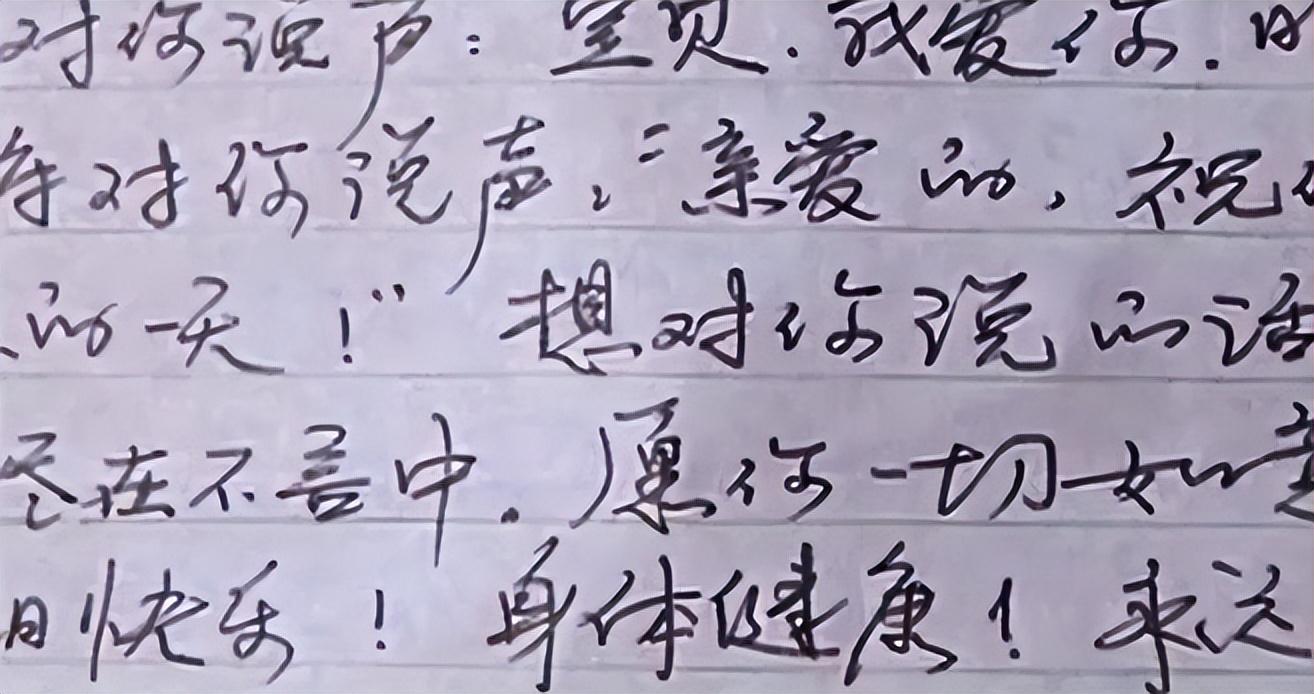 对你说声：宝贝，我爱你.
年对你说声，“亲爱的，祝
的一天！” 想对你说的话
尽在不言中。愿你一切如意
日快乐！ 身体健康！ 永远